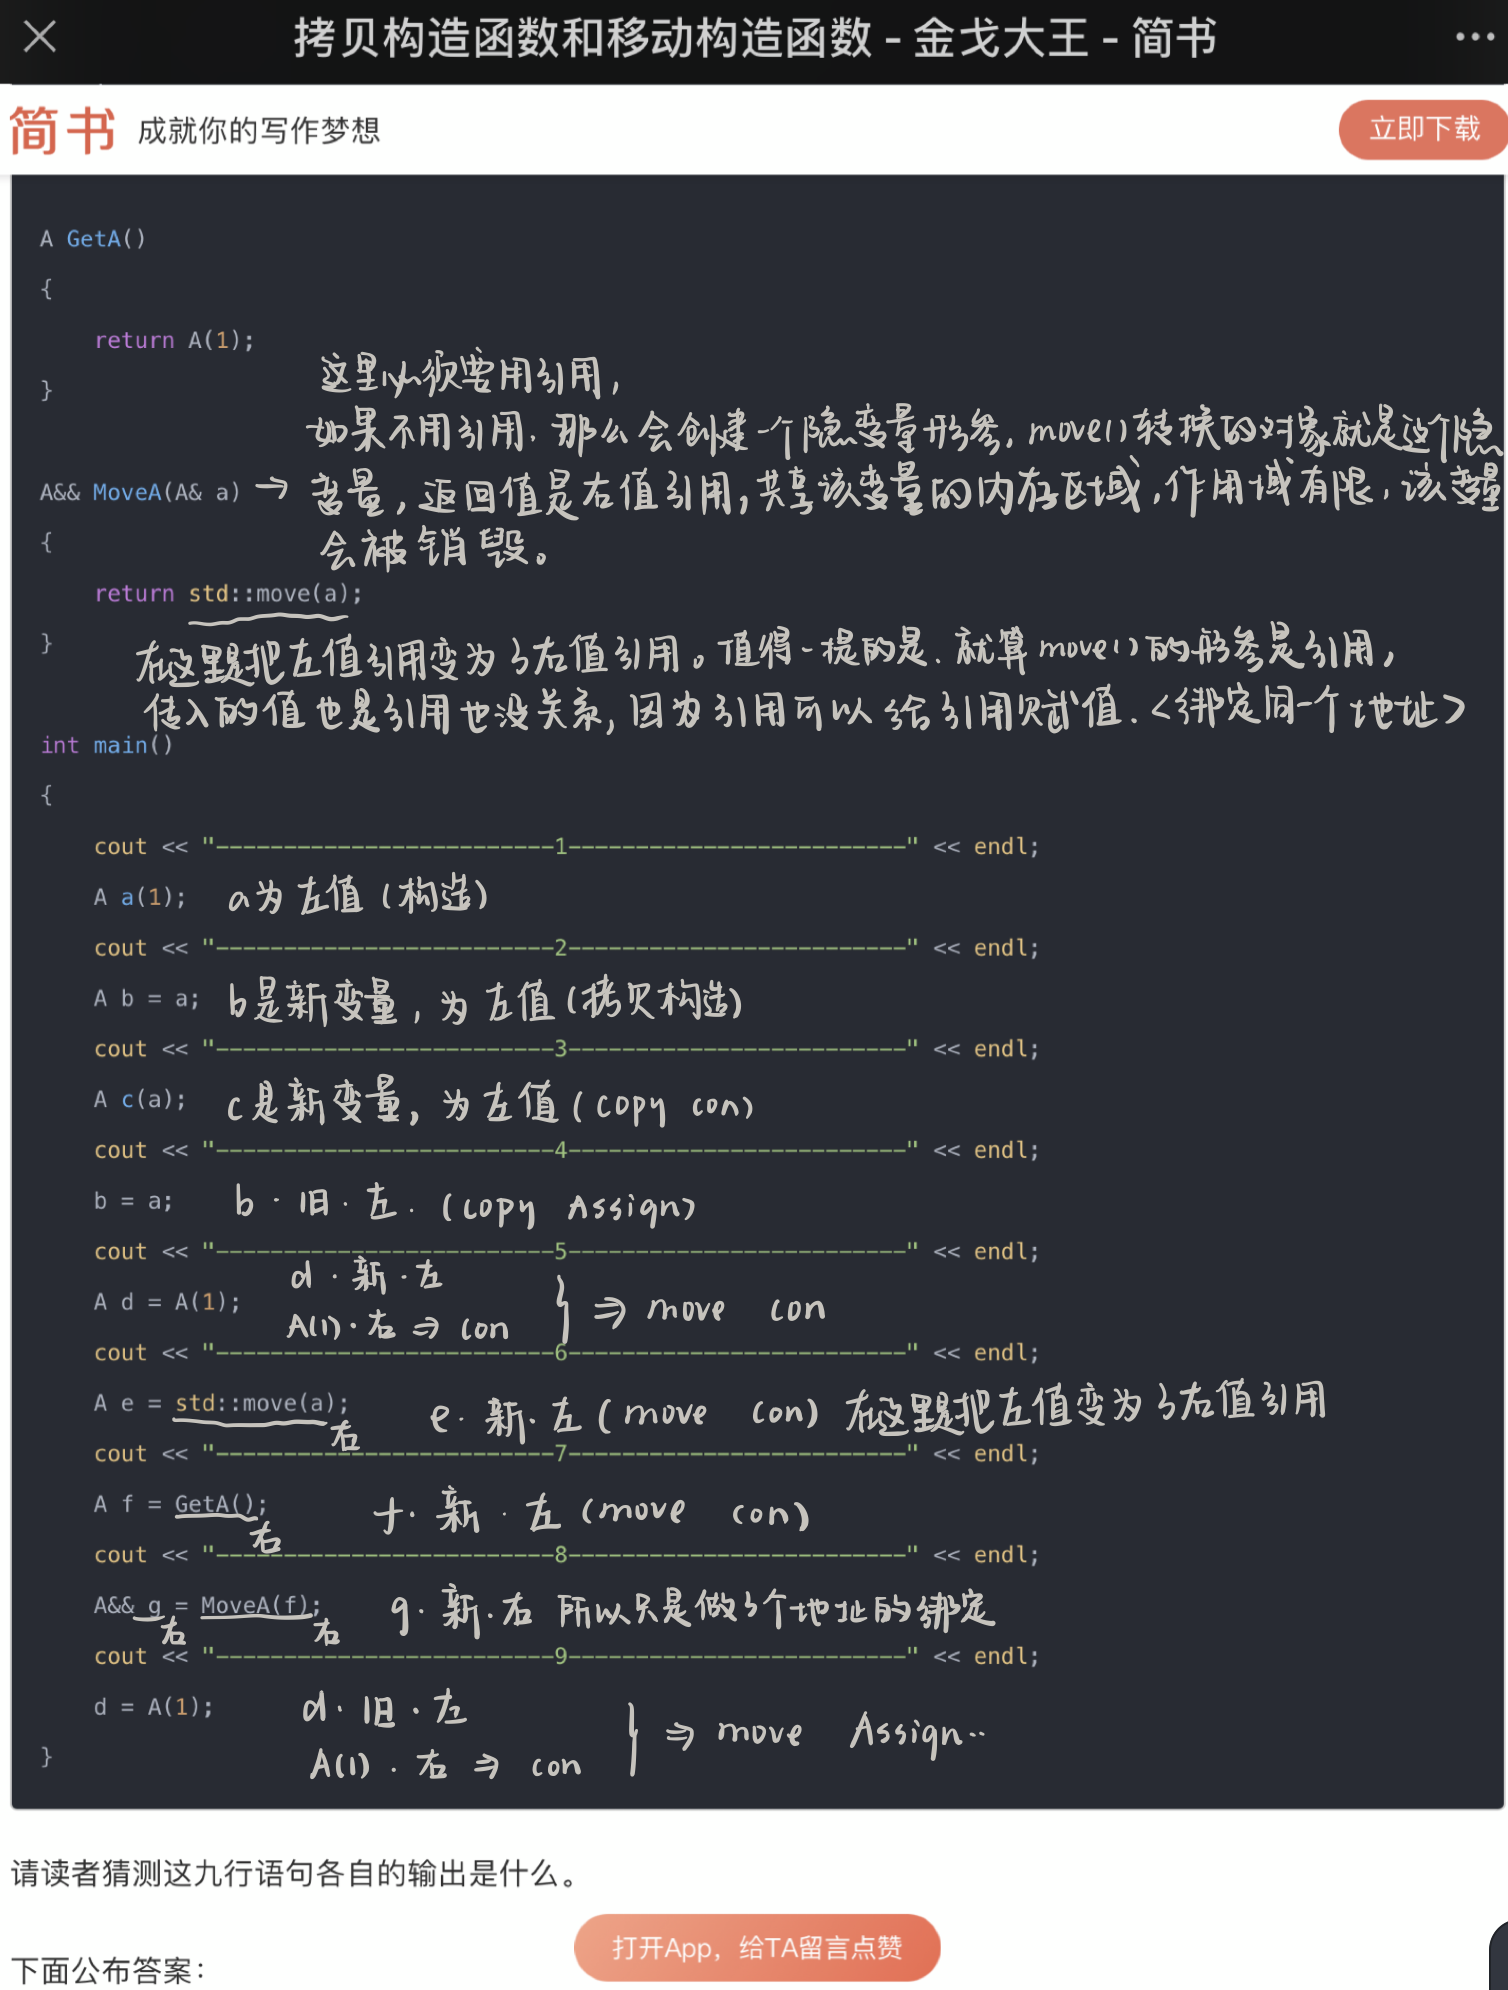 拷贝构造函数和移动构造函数 - 金戈大王 - 简书
简书 成就你的写作梦想 立即下载
A GetA()
{
return A(1);
}
这里必须要用引用,
如果不用引用,那么会创建一个隐变量形参,move()转换的对象就是这个隐
A&& MoveA(A& a) → 变量,返回值是右值引用,共享该变量的内存区域,作用域有限,该变量
会被销毁。
{
return std::move(a);
}
在这里是把左值引用变为了右值引用。值得一提的是,就算move()的形参是引用,
传入的值也是引用也没关系,因为引用可以给引用赋值.<绑定同一个地址>
int main()
{
cout << "---------------------------1-------------------------" << endl;
A a(1); a为左值(构造)
cout << "---------------------------2-------------------------" << endl;
A b = a; b是新变量,为左值(拷贝构造)
cout << "---------------------------3-------------------------" << endl;
A c(a); c是新变量,为左值(copy con)
cout << "---------------------------4-------------------------" << endl;
b = a; b·旧·左.(copy Assign)
cout << "---------------------------5-------------------------" << endl;
d·新·左
A d = A(1); } ⇒ move con
A(1)·右 ⇒ con
cout << "---------------------------6-------------------------" << endl;
A e = std::move(a); e·新·左(move con) 在这里是把左值变为了右值引用
右
cout << "---------------------------7-------------------------" << endl;
A f = GetA(); f·新·左(move con)
右
cout << "---------------------------8-------------------------" << endl;
A&& g = MoveA(f); g·新·右 所以只是做了个地址的绑定
右 右
cout << "---------------------------9-------------------------" << endl;
d = A(1); d·旧·左
} ⇒ move Assign..
A(1)·右 ⇒ con
}
请读者猜测这九行语句各自的输出是什么。
打开App，给TA留言点赞
下面公布答案：